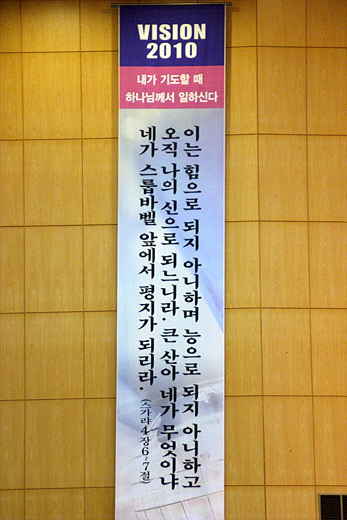 VISION
2010
내가 기도할 때
하나님께서 일하신다
이는 힘으로 되지 아니하며 능으로 되지 아니하고
오직 나의 신으로 되느니라. 큰 산아 네가 무엇이냐
네가 스룹바벨 앞에서 평지가 되리라. (스가랴4장6~7절)